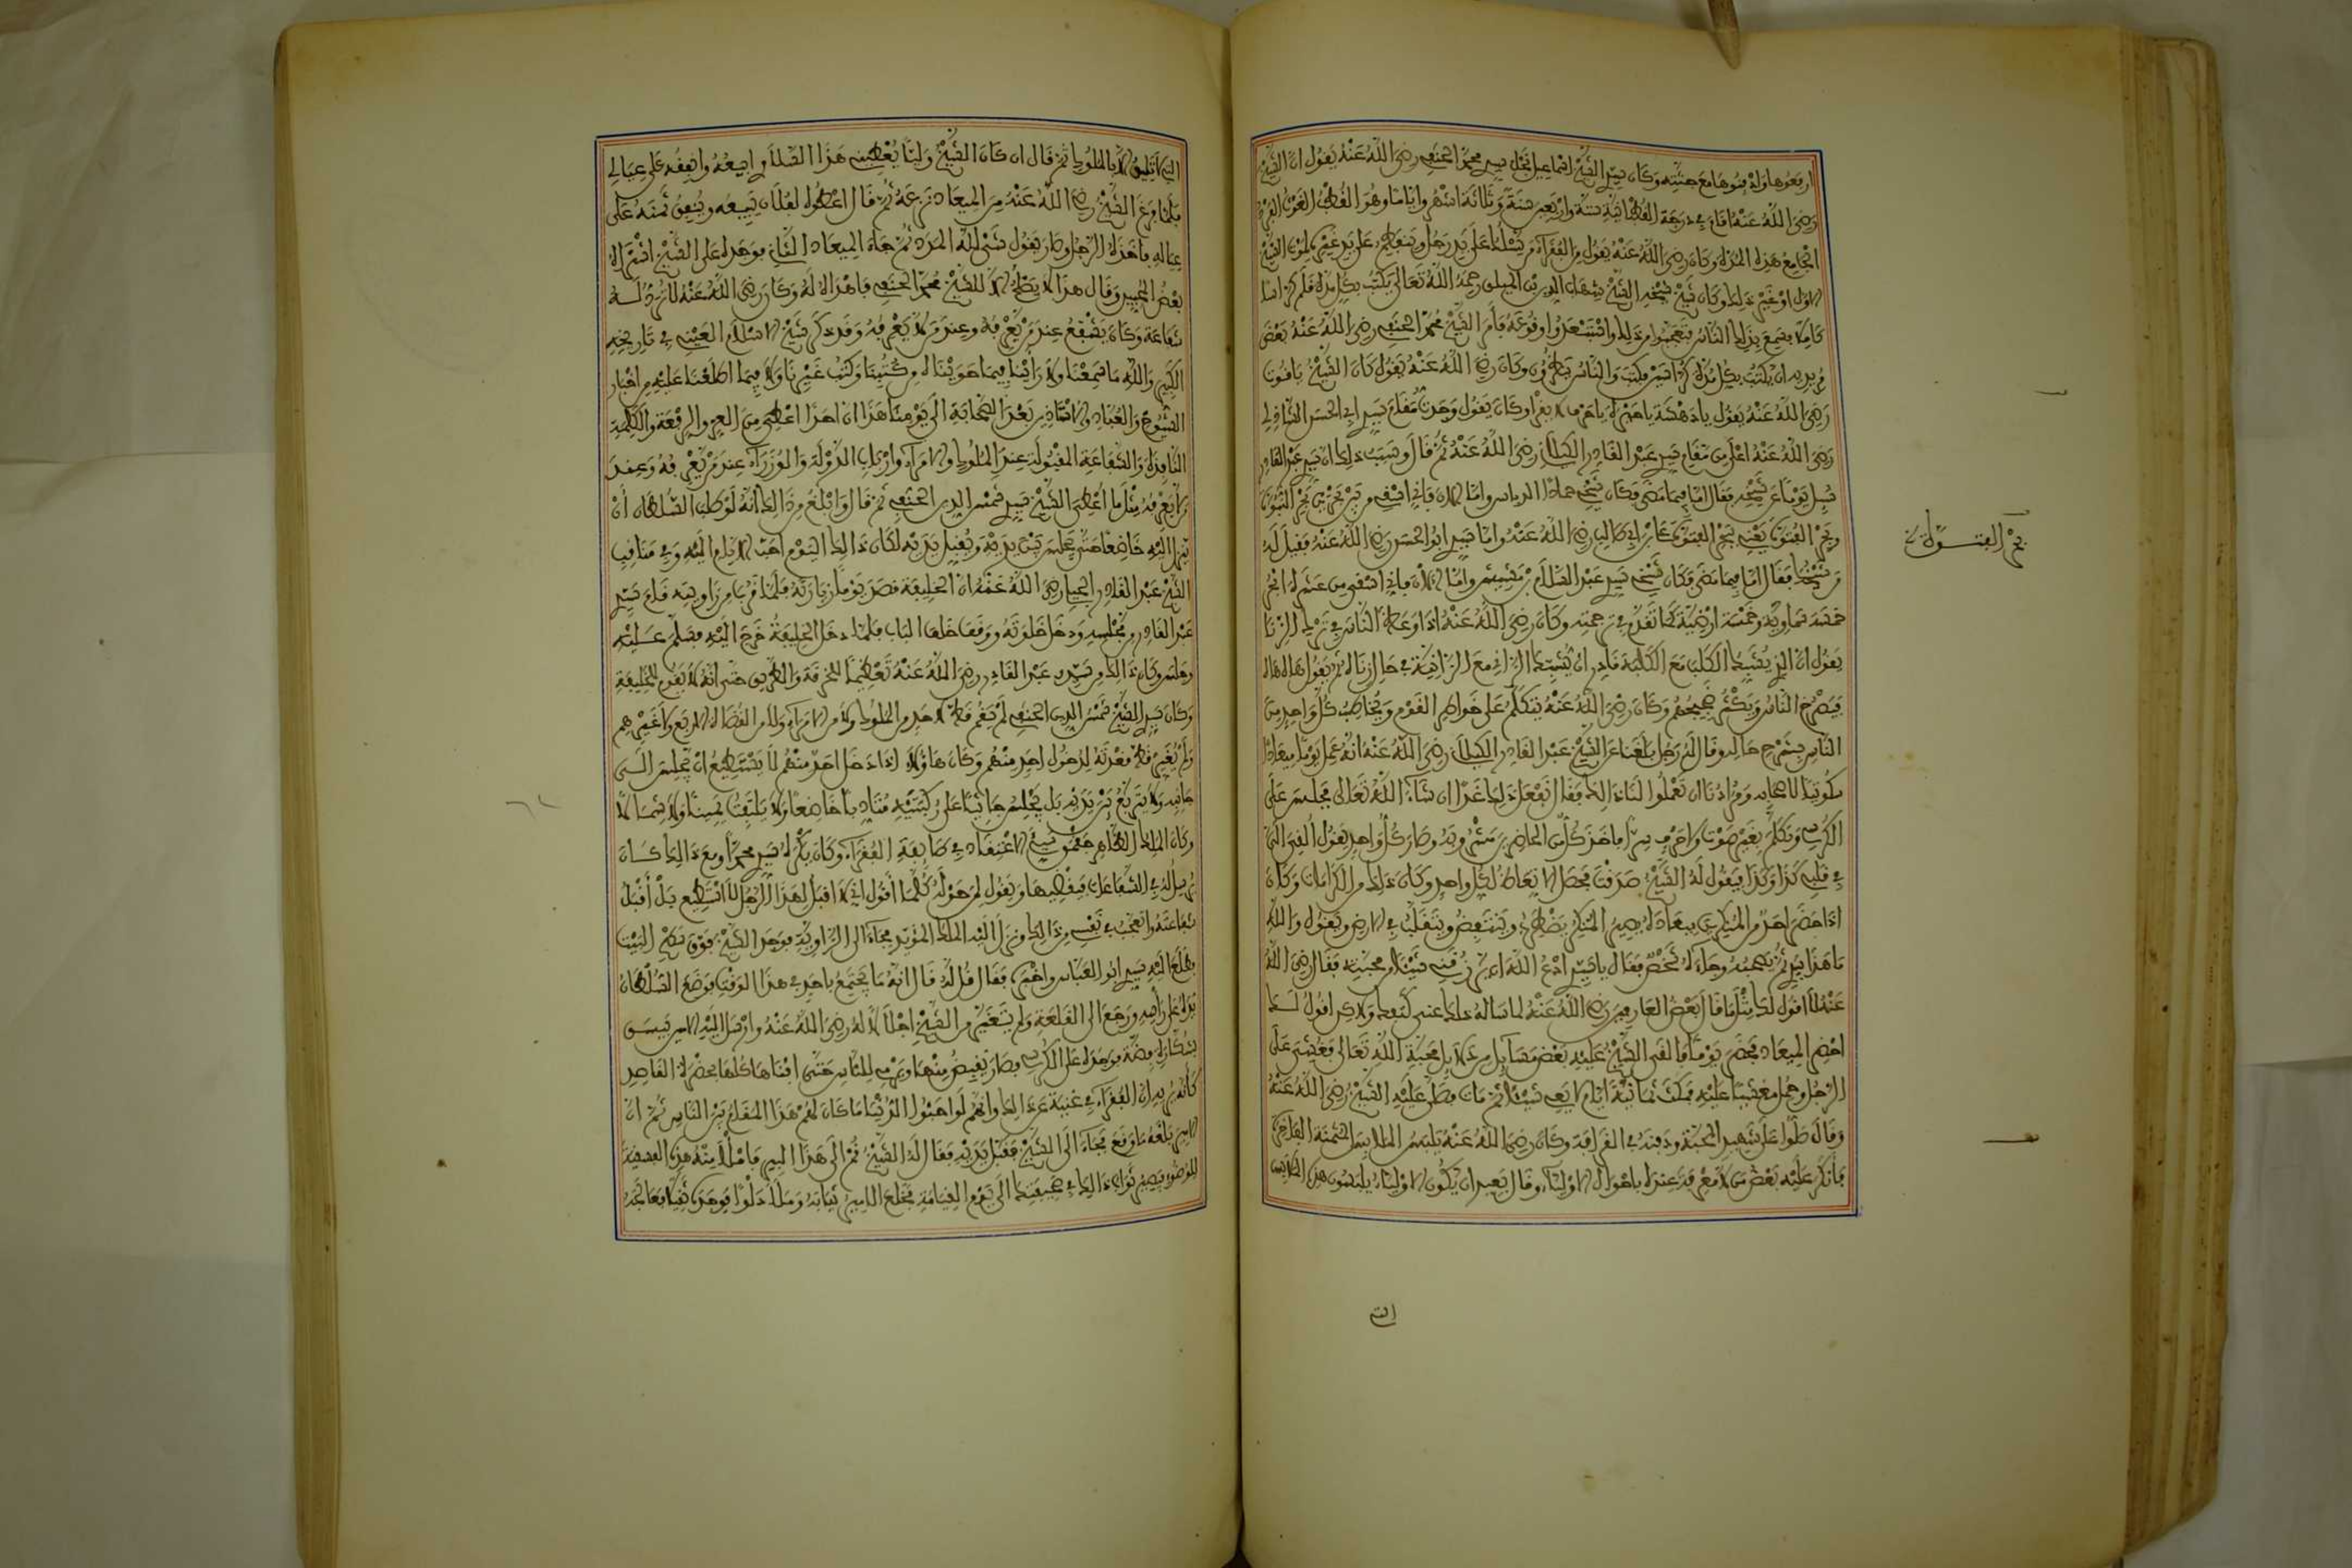 اربعوها واذبنوها مع جثته وكان سيدي الشيخ اسماعيل نجل سيدي محمد الحنفي رضي الله عنه يقول ان الشيخ
رضي الله عنه اقام في درجة القطبانية ستة واربعين سنة وثلاثة اشهر واياما وهو القطب الغوث الفرد
الجامع هذه المدة وكان رضي الله عنه يقول من الفقراء من يسلك على يد رجل وينفطم على يد غيره لموت الشيخ
الاول او غير ذلك وكان شيخ شيخه الشيخ شهاب الدين بن الميلق رحمه الله تعالى يكتب بكل مدة قلم كراسا
كاملا فسمع بذلك الناس فتعجبوا من ذلك واستبعدوا وقوعه فامر الشيخ محمد الحنفي رضي الله عنه بعض
مريديه ان يكتب بكل مدة كراسين فكتب والناس ينظرون وكان رضي الله عنه يقول كان الشيخ ياقوت
رضي الله عنه يقول يا دهشة يا حيرة يا حرف لا يقرا وكان يقول وجدت مقام سيدي ابي الحسن الشاذلي
رضي الله عنه اعلى من مقام سيدي عبد القادر الكيلاني رضي الله عنه ثم قال وسبب ذلك ان سيدي عبد القادر
سيل يوما عن شيخه فقال اما فيما مضى فكان شيخي حماد الدباس واما الان فاني اسقى من بين بحرين بحر النبوة
وبحر الفتوة يعني بحر الفتوة علي بن ابي طالب رضي الله عنه واما سيدي ابو الحسن رضي الله عنه فقيل له
من شيخك فقال اما فيما مضى فكان شيخي سيدي عبد السلام بن مشيش واما الان فاني اسقى من عشرة ابحر
خمسة سماوية وخمسة ارضية كما تقدم في ترجمته وكان رضي الله عنه اذا وعظ الناس في ترك الزنا
يقول ان الذي يشبك الكلب مع الكلبة قادر ان يشبك الزاني مع الزانية في حال زناه ثم يقول هاه هاه
فيصرخ الناس ويكثر ضجيجهم وكان رضي الله عنه يتكلم على خواطر القوم ويخاطب كل واحد من
الناس بشرح حاله وقال له رجل بلغنا عن الشيخ عبد القادر الكيلاني رضي الله عنه انه عمل يوما ميعادا
سكوتيا لاصحابه ومرادنا ان تعملوا لنا ذالك فقال نفعل ذلك غدا ان شاء الله تعالى فجلس على
الكرسي وتكلم بغير صوت ولا حرف سرا فاخذ كل من الحاضرين مشروبه وصار كل واحد يقول القي الي
في قلبي كذا وكذا فيقول له الشيخ صدقت فحصل الاتعاظ لكل واحد وكان ذلك من الكرامات وكان
اذا حضر احد من المنكرين ميعاده يصير المنكر يضطرب وينتفض ويتقلب في الارض ويقول والله
ما هذا سدى ثم يصحبه وجاءه شخص فقال يا سيدي ادع الله ان يرزقني شيئا من محبته فقال رضي الله
عنه لا اقول لك مثل ما قال بعض العارفين رضي الله عنه لما ساله ذلك عنس كبعك ولاكن اقول لك
احضر الميعاد فحضر يوما فالقى الشيخ عليه بعض مسايل من دلايل محبة الله تعالى فغشي على
الرجل وحمل مغشيا عليه فمكث ثمانية ايام لا يعي شيئا ثم مات فصلى عليه الشيخ رضي الله عنه
وقال صلوا على شهيد المحبة ودفنه في القرافة وكان رضي الله عنه يلبس الملابس المثمنة الفاخرة
فانكر عليه بعض من لا معرفة عنده باحوال الاولياء وقال بعيد ان يكون الاولياء يلبسون هذه الملابس
بحر الفتوة
التي
التي لا تليق الا بالملوك ثم قال ان كان الشيخ وليا يعطيني هذا السلاري ابيعه وانفقه على عيالي
فلما فرغ الشيخ رضي الله عنه من الميعاد نزعه ثم قال اعطوه لفلان يبيعه وينفق ثمنه على
عياله فاخذه الرجل وصار يقول شيء لله المدد ثم جاء الميعاد الثاني فوجده على الشيخ اشتراه
بعض المحبين وقال هذا لا يصلح الا للشيخ محمد الحنفي فاهداه له وكان رضي الله عنه لا ترد له
شفاعة وكان يشفع عند من يعرفه وعند من لا يعرفه وقد ذكر شيخ الاسلام العيني في تاريخه
الكبير والله ما سمعنا ولا راينا فيما حويناه من كتبنا وكتب غيرنا ولا فيما اطلعنا عليه من اخبار
الشيوخ والعباد والاستاذين بعد الصحابة الى يومنا هذا ان احدا اعطي من العز والرفعة والكلمة
النافذة والشفاعة المقبولة عند الملوك والامراء وارباب الدولة والوزراء عند من يعرفه وعند من
لا يعرفه مثل ما اعطي الشيخ سيدي شمس الدين الحنفي ثم قال وابلغ من ذالك انه لو طلب السلطان ان
ينزل اليه خاضعا حتى يجلس بين يديه ويقبل يديه لكان ذالك اليوم احب الايام اليه وفي مناقب
الشيخ عبد القادر الجيلي رضي الله عنه ان الخليفة قصد يوما زيارته فلما قرب من زاويته قام سيدي
عبد القادر من مجلسه ودخل خلوته ووقف خلف الباب فلما دخل الخليفة خرج اليه فسلم عليه
وجلس وكان ذالك من سيدي عبد القادر رضي الله عنه تعظيما للخرقة والطريق حتى انه لا يقوم للخليفة
وكان سيدي الشيخ شمس الدين الحنفي لم يقم قط لاحد من الملوك ولا من الامراء ولا من القضاة الاربع ولا غيرهم
ولم يغير قط قعدته لدخول احد منهم وكان هاؤلاء اذا دخل احد منهم لا يستطيع ان يجلس الى
جانبه ولا يتربع بين يديه بل يجلس جاثيا على ركبتيه متادبا خاضعا ولا يلتفت يمينا ولا شمالا
وكان الملك الظاهر جقمق سيء الاعتقاد في طايفة الفقراء وكان يكره سيدي محمد ومع ذالك كان
يرسل له في الشفاعات فيقضيها ويقول لمن حوله كلما اقول اني لا اقبل لهذا الرجل لا استطيع بل اقبل
شفاعته واتعجب في نفسي من ذالك ونزل اليه الملك المؤيد فجاء الى الزاوية فوجد الشيخ فوق سطح البيت
فطلع اليه سيدي ابو العباس واخبره فقال قل له قال انه ما يجتمع باحد في هذا الوقت فوضع السلطان
يده على راسه ورجع الى القلعة ولم يتغير من الشيخ اجلالا له رضي الله عنه وارسل اليه الامير بيسق
بشكارة فضة فوجده على الكرسي فصار يقبض منها ويرمي للناس حتى افناها كلها بحضرة القاصد
كانه يريه ان الفقراء في غنية عن ذالك وانهم لو احبوا الدنيا ما كان لهم هذا المقام بين الناس ثم ان
الامير بلغه ما وقع فجاء الى الشيخ فقبل يديه فقال له الشيخ قم الى هذا البير فاملأ منه هذه الفسقية
للوضوء فيصير ثواب ذالك في صحيفتك الى يوم القيامة فخلع الامير ثيابه وملأ دلوا فوجده ثقيلا فعالجه